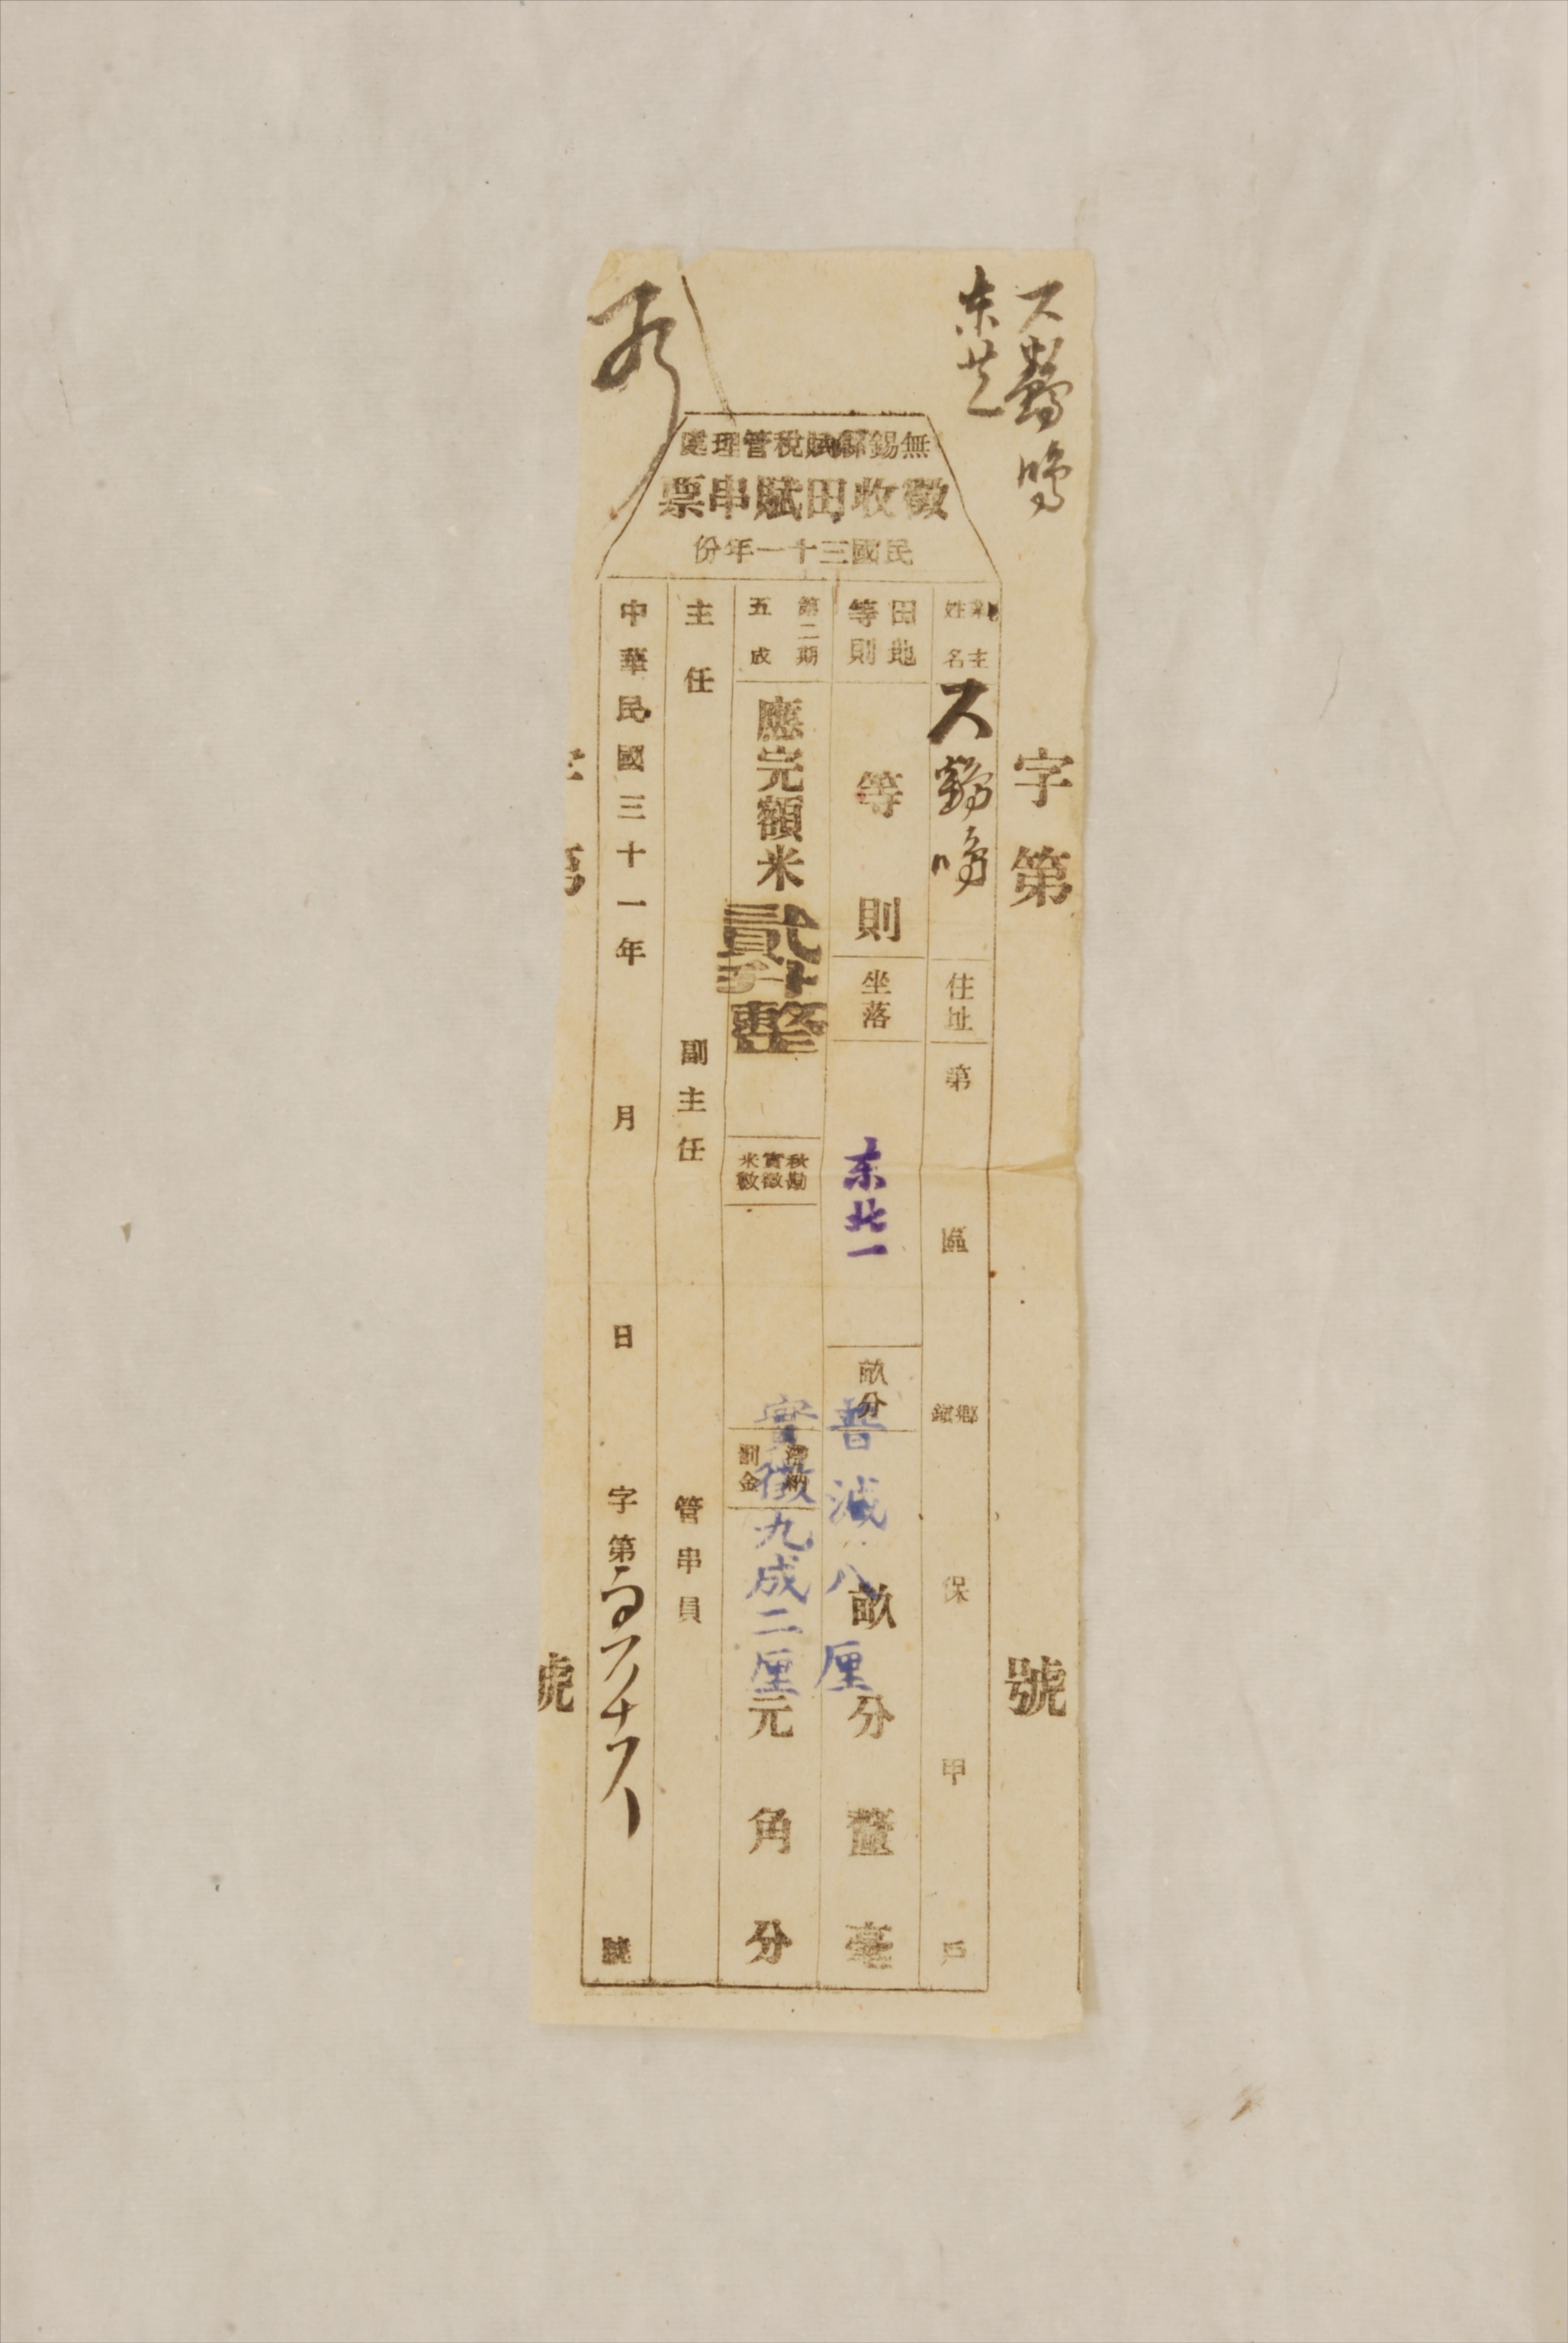 东芝
無錫縣賦稅管理處
徵收田賦串票
民國三十一年份
字第 號
業主姓名 鶴鳴 住址 第 區 鄉鎮 保 甲 戶
田地等則 等則 坐落 东北一 畝分 畝分釐毫
暂减八厘
第二期五成 應完額米貳升整 秋勘實徵米數 滯納罰金 元角分
實徵九成二厘
主任 副主任 管串員
中華民國三十一年 月 日 字第 號
字第 號